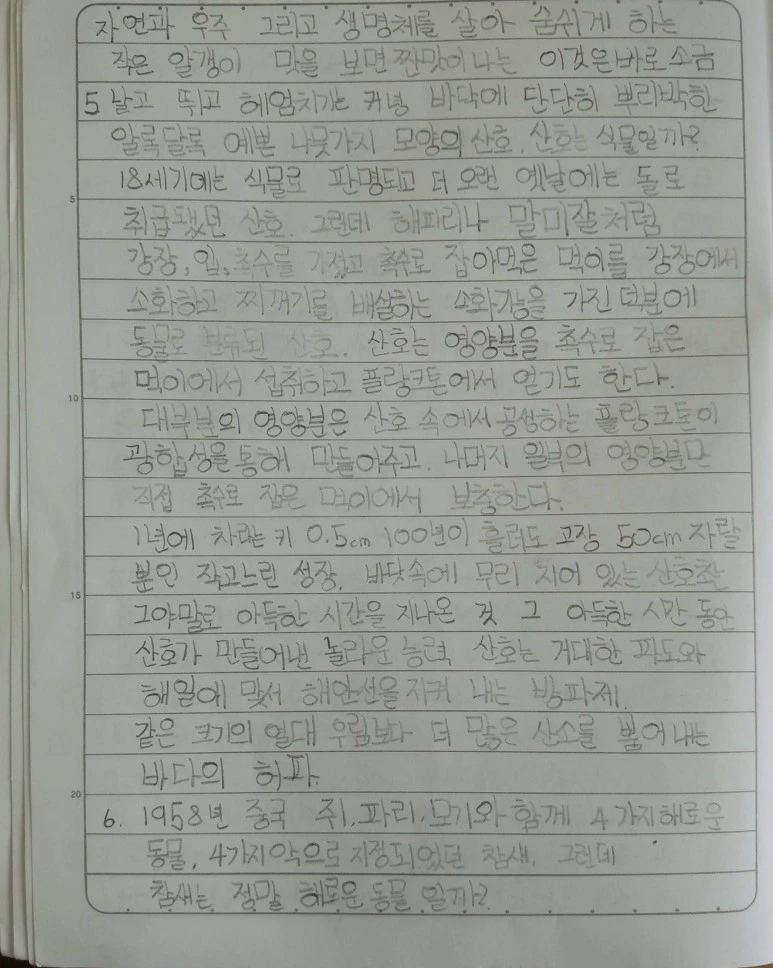 자연과 우주 그리고 생명체를 살아 숨쉬게 하는
작은 알갱이 맛을 보면 짠맛이 나는 이것은 바로 소금
5 날고 뛰고 헤엄치기는 커녕 바닥에 단단히 뿌리박힌
알록달록 예쁜 나뭇가지 모양의 산호. 산호는 식물일까?
18세기에는 식물로 판명되고 더 오랜 옛날에는 돌로
5
취급됐던 산호. 그런데 해파리나 말미잘처럼
강장, 입, 촉수를 가졌고 촉수로 잡아먹은 먹이를 강장에서
소화하고 찌꺼기를 배설하는 소화강을 가진 덕분에
동물로 분류된 산호. 산호는 영양분을 촉수로 잡은
먹이에서 섭취하고 플랑크톤에서 얻기도 한다.
10
대부분의 영양분은 산호 속에서 공생하는 플랑크톤이
광합성을 통해 만들어주고. 나머지 일부의 영양분만
직접 촉수로 잡은 먹이에서 보충한다.
1년에 자라는 키 0.5cm 100년이 흘러도 고장 50cm 자랄
뿐인 작고느린 성장. 바닷속에 무리 지어 있는 산호초는
15
그야말로 아득한 시간을 지나온 것 그 아득한 시간 동안
산호가 만들어낸 놀라운 능력 산호는 거대한 파도와
해일에 맞서 해안선을 지켜 내는 방파제.
같은 크기의 열대 우림보다 더 많은 산소를 뿜어 내는
바다의 허파.
20
6. 1958년 중국 쥐, 파리, 모기와 함께 4가지 해로운
동물, 4가지 악으로 지정되었던 참새. 그런데
참새는 정말 해로운 동물 일까?